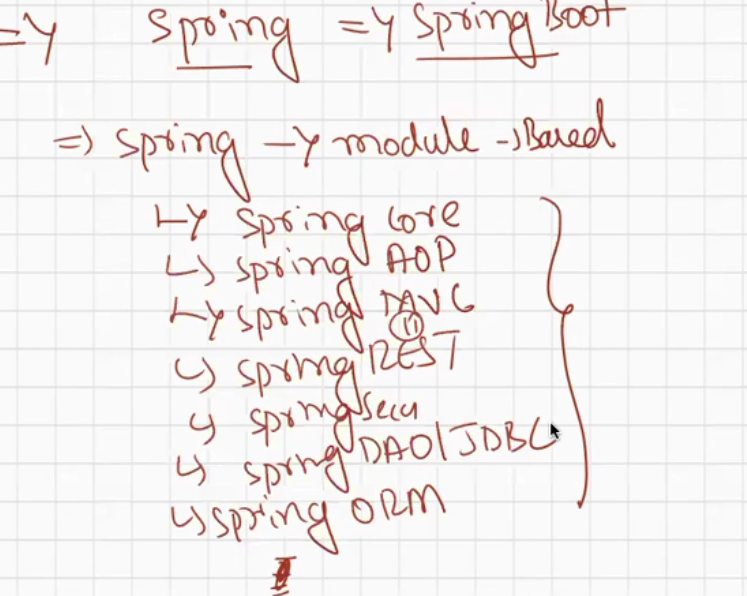 => Spring => Spring Boot
=> Spring -> module -> Based
↳ spring core
↳ spring AOP
↳ spring MVC
11
↳ spring REST
↳ spring secu
↳ spring DAO/JDBC
↳ spring ORM